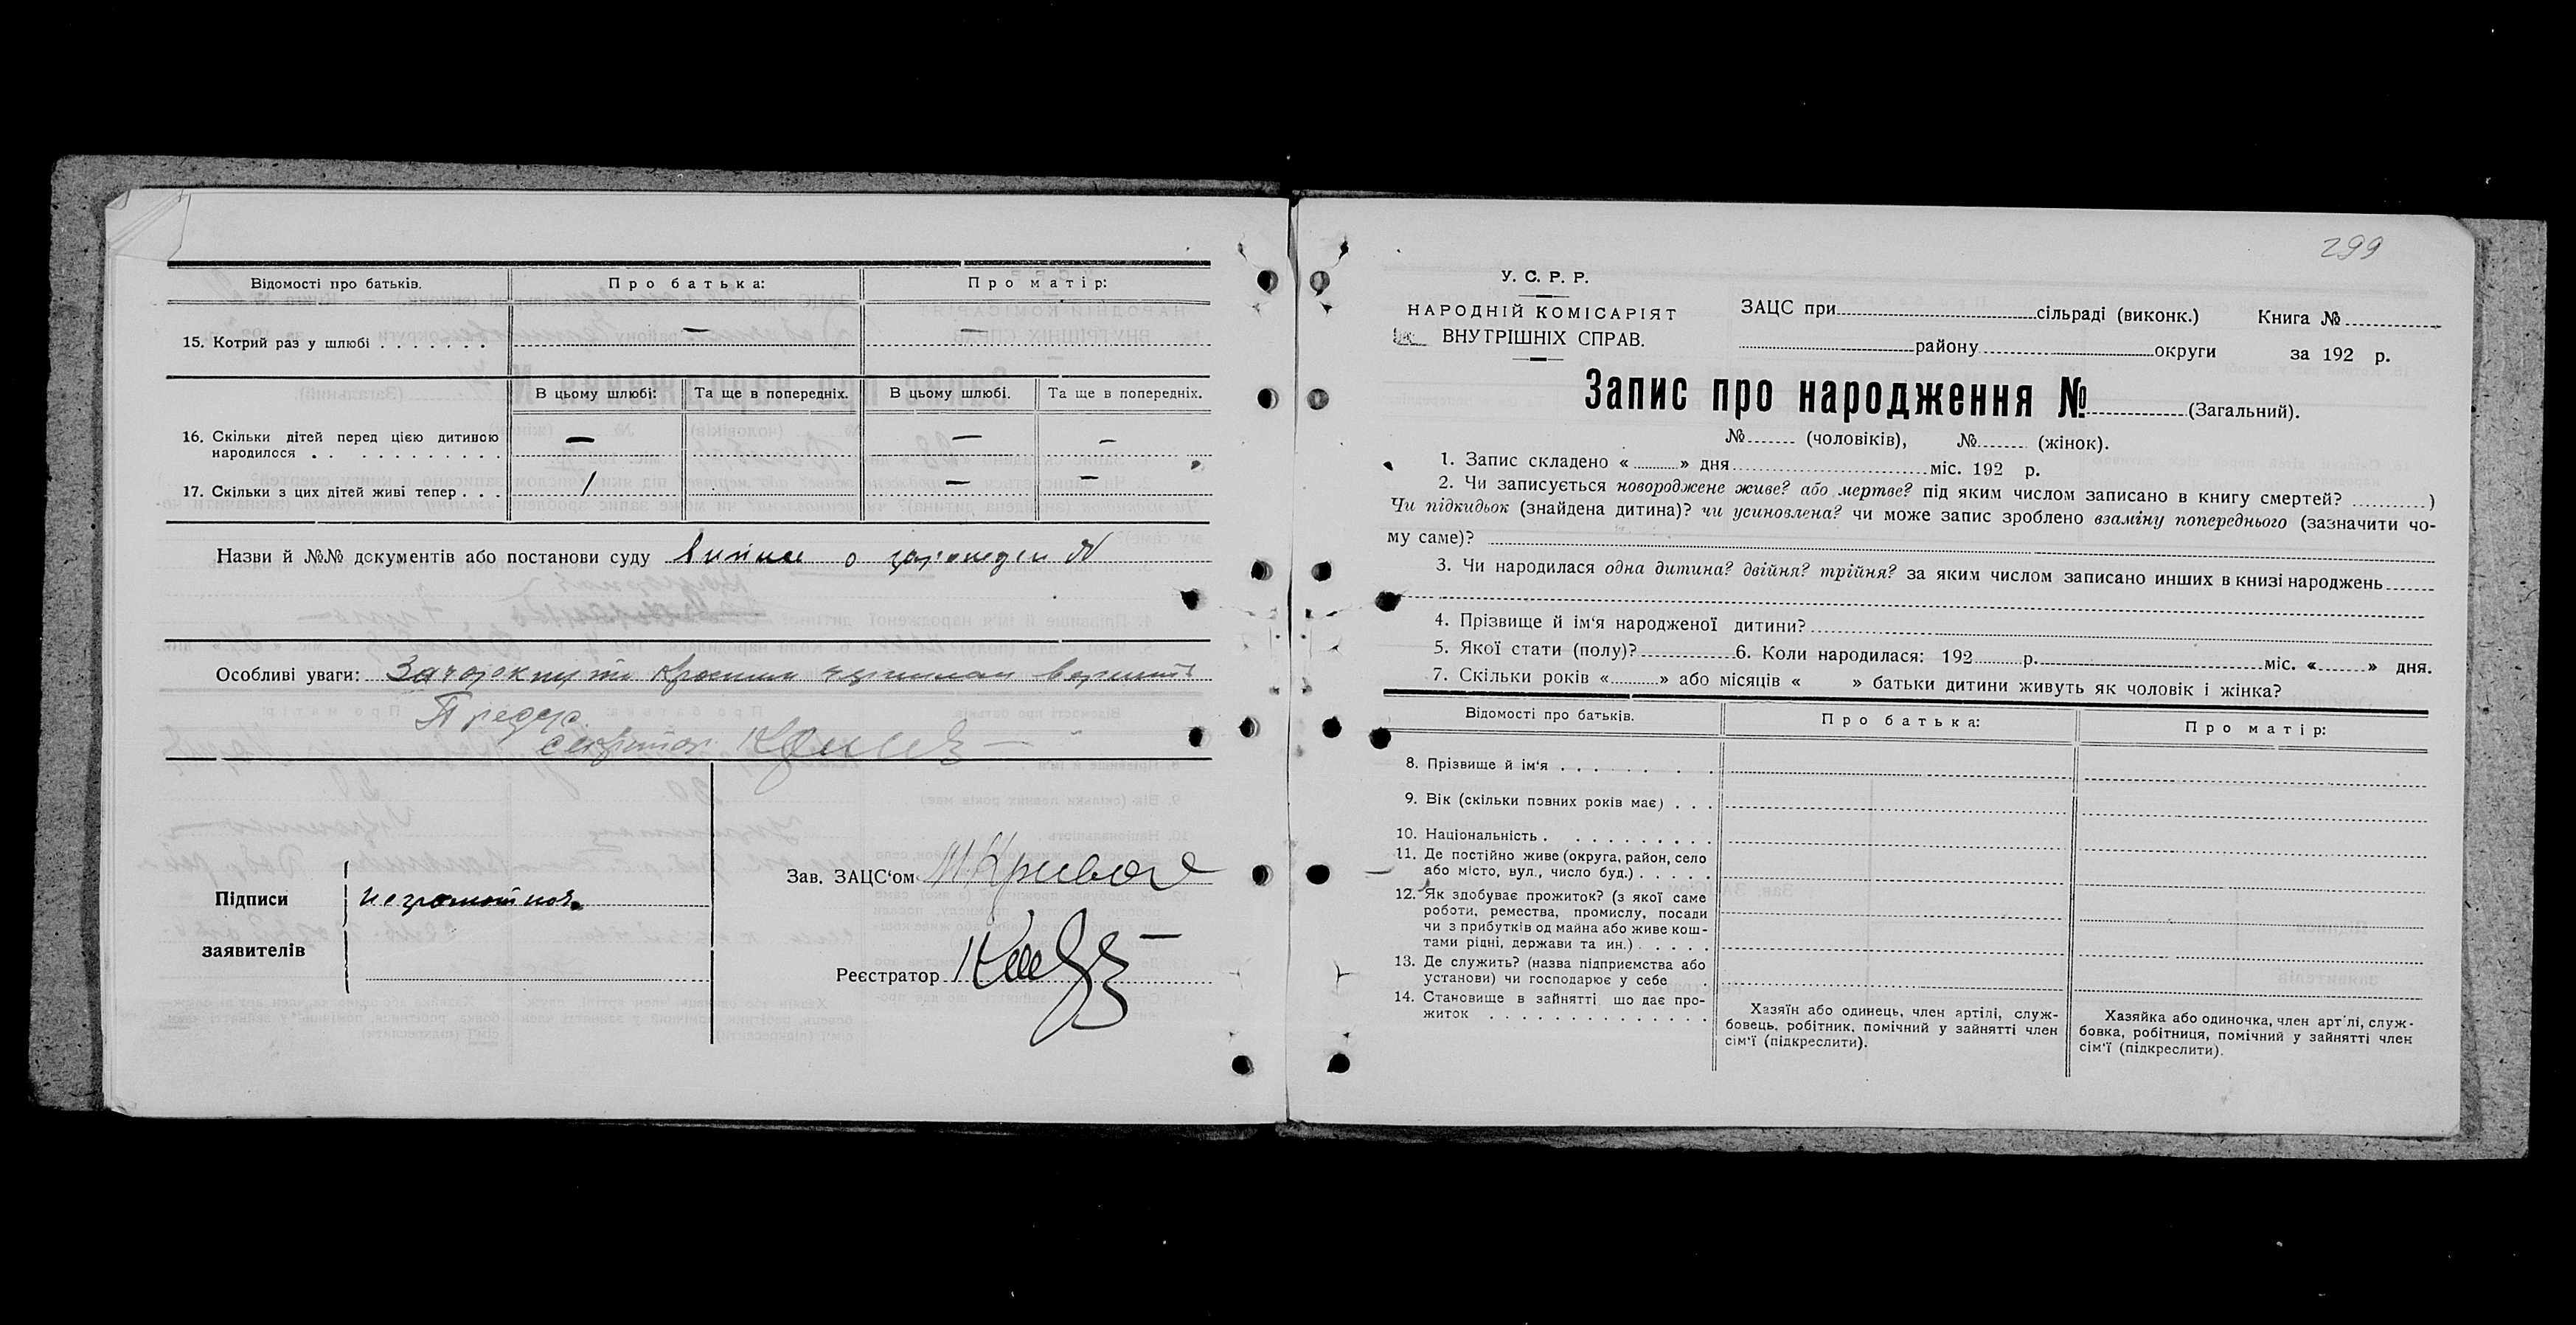 Відомості про батьків. Про батька: Про матір:
15. Котрий раз у шлюбі . . . . . . . — —
В цьому шлюбі: Та ще в попередніх. В цьому шлюбі. Та ще в попередніх.
16. Скільки дітей перед цією дитиною — — —
народилося . . . . . . . . . . .
17. Скільки з цих дітей живі тепер . . . 1 — —
Назви й №№ документів або постанови суду
Особливі уваги:
Зав. ЗАЦС‘ом
Підписи неграмотная
заявителів
Реєстратор
299
У. С. Р. Р.
НАРОДНІЙ КОМІСАРІЯТ
ВНУТРІШНІХ СПРАВ.
ЗАЦС при сільраді (виконк.) Книга №
району округи за 192 р.
Запис про народження № (Загальний).
№ (чоловіків), № (жінок).
1. Запис складено « » дня міс. 192 р.
2. Чи записується новороджене живе? або мертве? під яким числом записано в книгу смертей? )
Чи підкидьок (знайдена дитина)? чи усиновлена? чи може запис зроблено взаміну попереднього (зазначити чо-
му саме)?
3. Чи народилася одна дитина? двійня? трійня? за яким числом записано инших в книзі народжень
4. Прізвище й ім‘я народженої дитини?
5. Якої стати (полу)? 6. Коли народилася: 192 р. міс. « » дня.
7. Скільки років « » або місяців « » батьки дитини живуть як чоловік і жінка?
Відомості про батьків. Про батька: Про матір:
8. Прізвище й ім‘я . . . . . .
9. Вік (скільки повних років має) . . .
10. Національність . . . . . . . . . .
11. Де постійно живе (округа, район, село
або місто, вул., число буд.) . . . . .
12. Як здобуває прожиток? (з якої саме
роботи, ремества, промислу, посади
чи з прибутків од майна або живе кош-
тами рідні, держави та ин.) . . . . .
13. Де служить? (назва підприємства або
установи) чи господарює у себе .
14. Становище в зайнятті що дає про-
житок . . . . . . . . . . . . . .
Хазяїн або одинець, член артілі, служ-
бовець, робітник, помічний у зайнятті член
сім‘ї (підкреслити).
Хазяйка або одиночка, член артілі, служ-
бовка, робітниця, помічний у зайнятті член
сім‘ї (підкреслити).